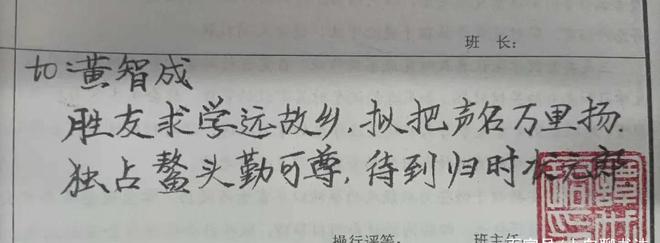 班 长:
to: 黄智成
胜友求学远故乡, 拟把声名万里扬.
独占鳌头勤可尊, 待到归时状元郎
操行评等:
班主任